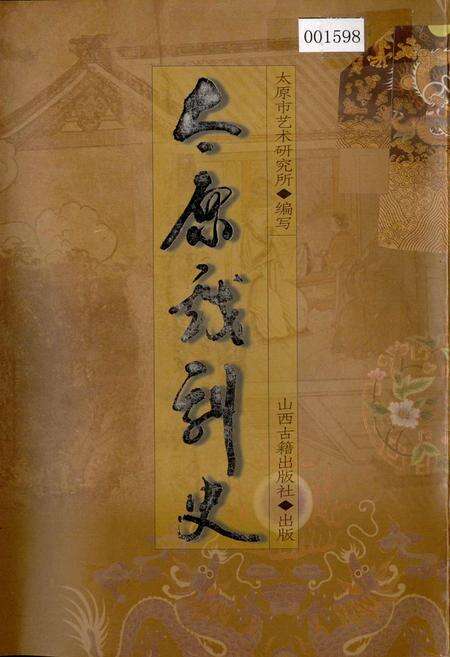 001598
太原戏剧史
太原市艺术研究所◆编写
山西古籍出版社◆出版